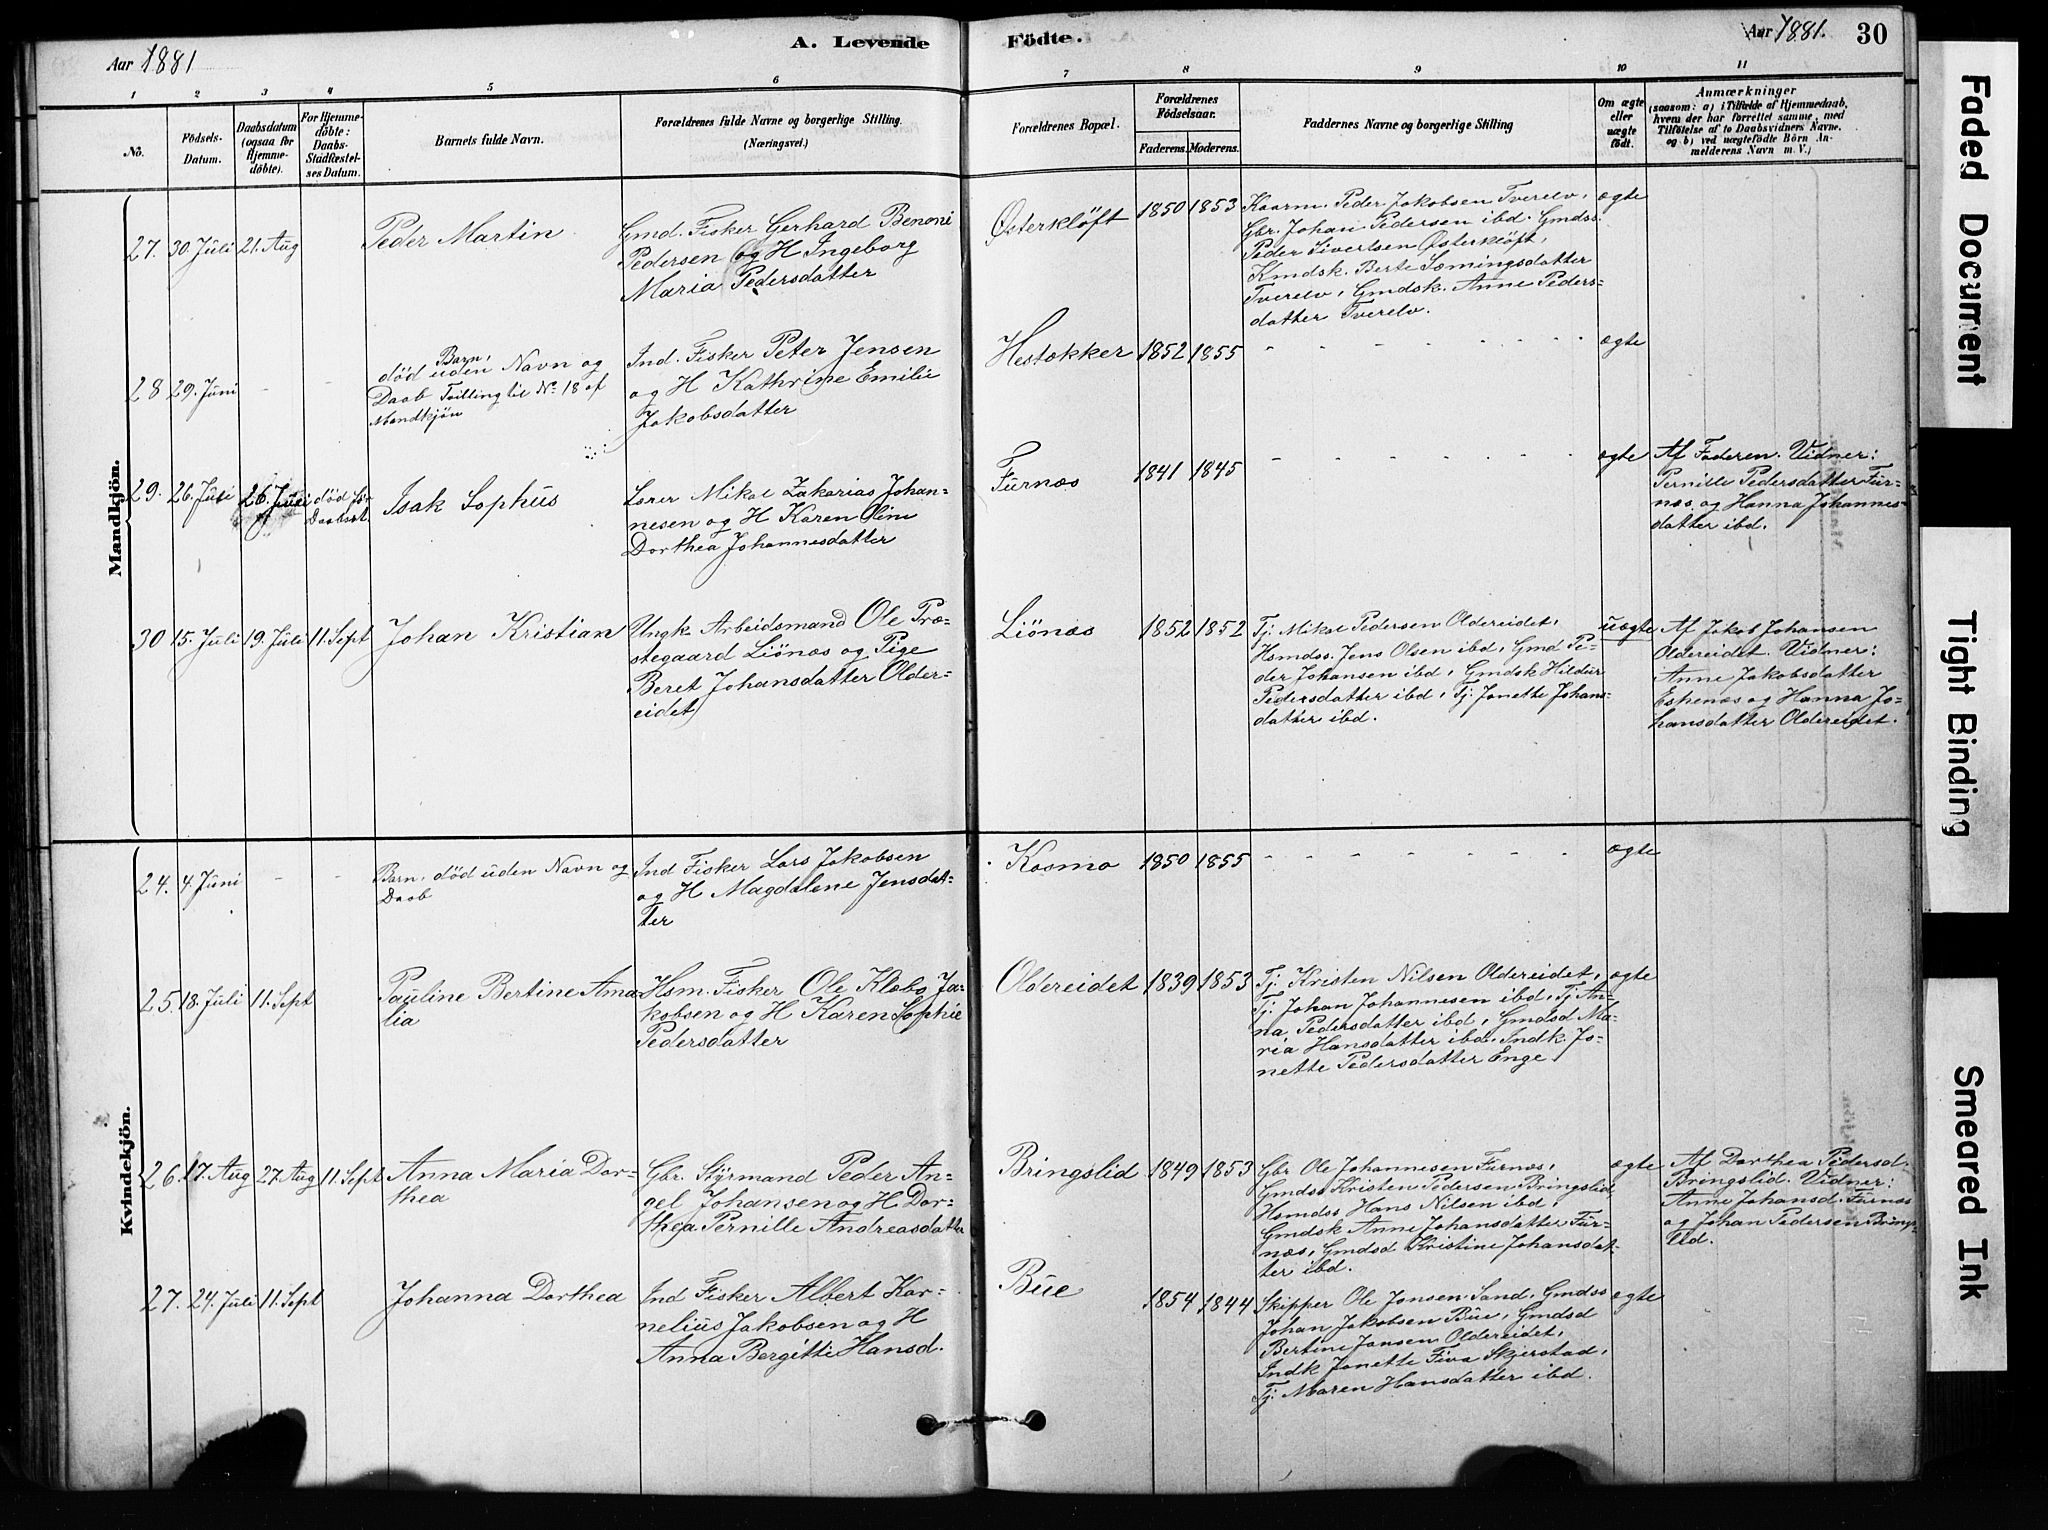 Aar 1881
A. Levende
Födte.
Aar 1881.
30
1
2
3
4
5
6
7
8
9
10
11
No.
Födsels-
Datum.
Daabsdatum
(ogsaa for
Hjemme-
döbte).
For Hjemme-
döbte:
Daabs-
Stadfæstel-
ses Datum.
Barnets fulde Navn.
Forældrenes fulde Navne og borgerlige Stilling.
(Næringsvei.)
Forældrenes Bopæl.
Forældrenes
Födselsaar.
Faderens.
Moderens.
Faddernes Navne og borgerlige Stilling
Om ægte
eller
uægte
födt.
Anmærkninger
(saasom: a) i Tilfælde af Hjemmedaab,
hvem der har forrettet samme, med
Tilföielse af to Daabsvidners Navne.
og b) ved uægtefödte Börn An-
melderens Navn m. V.)
Mandkjön.
27. 30. Juli 21. Aug
Peder Martin
Gmd. Fisker Gerhard Benoni
Pedersen og H Ingeborg
Maria Pedersdatter
Østerkløft
1850 1853
Kaarm. Peder Jakobsen Tverelv,
Gbr. Johan Pedersen ibd. Gmdss.
Peder Sivertsen Østerkløft,
Kmdsk. Berte Sæmingsdatter
Tverelv, Gmdsk. Anne Peders-
datter Tverelv.
ægte
28 29. Juni - -
Barn,
død uden Navn og
Daab Tvilling til No 18 af
Mandkjön
Ind. Fisker Peter Jensen
og H Kathrine Emilie
Jakobsdatter
Hestækker
1852 1855
ægte
29. 26. Juli 26. Juli død før
Daabsst.
Isak Sophus
Lærer Mikal Zakarias Johan-
nesen og H Karen Oline
Dorthea Johannesdatter
Furnæs
1841 1845
ægte
Af Faderen. Vidner:
Pernille Pedersdatter Fur-
næs og Hanna Johannes-
datter ibd.
30 15. Juli 19. Juli 11. Sept
Johan Kristian
Ungk. Arbeidsmand Ole Præ-
stegaard Liönæs og Pige
Beret Johansdatter Older-
eidet
Liönæs
1852 1852
Tj. Mikal Pedersen Oldereidet,
Hsmdss. Jens Olsen ibd, Gmd Pe-
der Johansen ibd, Gmdsk Hildur
Pedersdatter ibd, Tj. Jonette Johans-
datter ibd.
uægte
Af Jakob Johansen
Oldereidet. Vidner:
Anne Jakobsdatter
Eskenæs og Hanna Jo-
hansdatter Oldereidet.
Kvindekjön.
24. 4. Juni - -
Barn, død uden Navn og
Daab
Ind Fisker Lars Jakobsen
og H Magdalene Jensdat-
ter
Kosmo
1850 1855
ægte
25. 18. Juli 11. Sept
Pauline Bertine Ama-
lia
Hsm. Fisker Ole Klæbo Ja-
kobsen og H Karen Sophie
Pedersdatter
Oldereidet
1839 1853
Tj. Kristen Nilsen Oldereidet,
Tj. Johan Johannesen ibd, Tj An-
na Pedersdatter ibd, Gmdsd Ma-
ria Hansdatter ibd. Indk. Jo-
nette Pedersdatter Enge
ægte
26. 17. Aug 27. Aug 11. Sept
Anna Maria Dor-
thea
Gbr. Styrmand Peder An-
gel Johansen og H Dor-
thea Pernille Andreasdatter
Bringslid
1849 1853
Gbr Ole Johannesen Furnæs,
Gmdss Kristen Pedersen Bringslid,
Hsmdss Hans Nilsen ibd,
Gmdsk Anne Johansdatter Fur-
næs, Gmdsd Kristine Johansdat-
ter ibd.
ægte
Af Dorthea Pedersd.
Bringslid. Vidner:
Anne Johansd. Furnæs
og Johan Pedersen Brings-
lid.
27. 24. Juli 11. Sept
Johanna Dorthea
Ind Fisker Albert Kor-
nelius Jakobsen og H
Anna Bergitte Hansd.
Bue
1854 1844
Skipper Ole Jonsen Sand, Gmdss
Johan Jakobsen Bue, Gmdsd
Bertine Jansen Oldereidet,
Indk Jonette Fiva Skjerstad,
Tj. Maren Hansdatter ibd.
ægte
Faded Document
Tight Binding
Smeared Ink